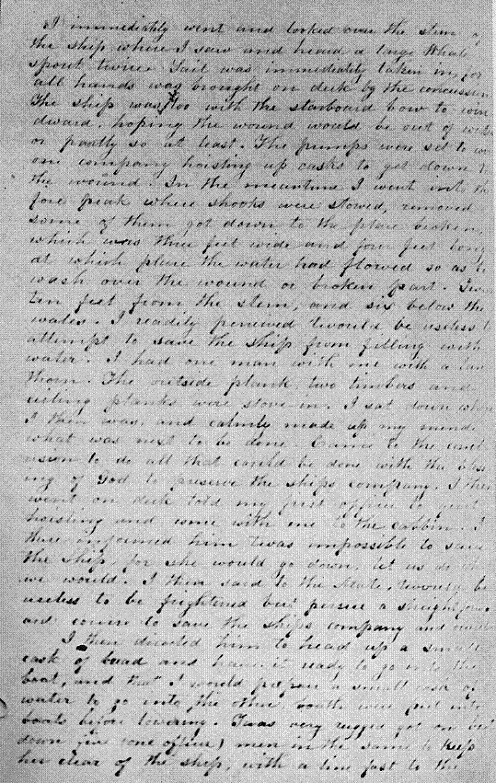 I immediately went and looked over the stem of
the ship where I saw and heard a large Whale
spout twice. Sail was immediately taken in, for
all hands was brought on deck by the concussion
The ship was too with the starboard bow to win
dward, hoping the wound would be out of water
or partly so at least. The pumps were set to work
one company hoisting up casks to get down to
the wound. In the meantime I went into the
fore peak where shooks were stowed, removed
some of them got down to the place broken,
which was three feet wide and four feet long
at which place the water had flowed so as to
wash over the wound or broken part. Twas
ten feet from the stem, and six below the
water. I readily perceived twould be useless to
attempt to save the ship from filling with
water. I had one man with me with a lan
thorn. The outside plank, two timbers and
ceiling planks were stove in. I sat down where
I then was, and calmly made up my mind
what was next to be done. Came to the concl
usion to do all that could be done with the bless
ing of God to preserve the ships company. I then
went on deck told my first officer to quit
hoisting and come with me to the cabbin. I
there informed him twas impossible to save
the ship, for she would go down, let us do what
we would. I then said to the Mate, twould be
useless to be frightened but pursue a straight forw
ard course to save the ships company and
I then directed him to head up a small
cask of bread and have it ready to go into the
boat, and that I would prepare a small cask of
water to go into the other, both were put into
boats before lowering. Twas very rugged got one boat
down five (one officer) men in the same to keep
her clear of the ship, with a line fast to the